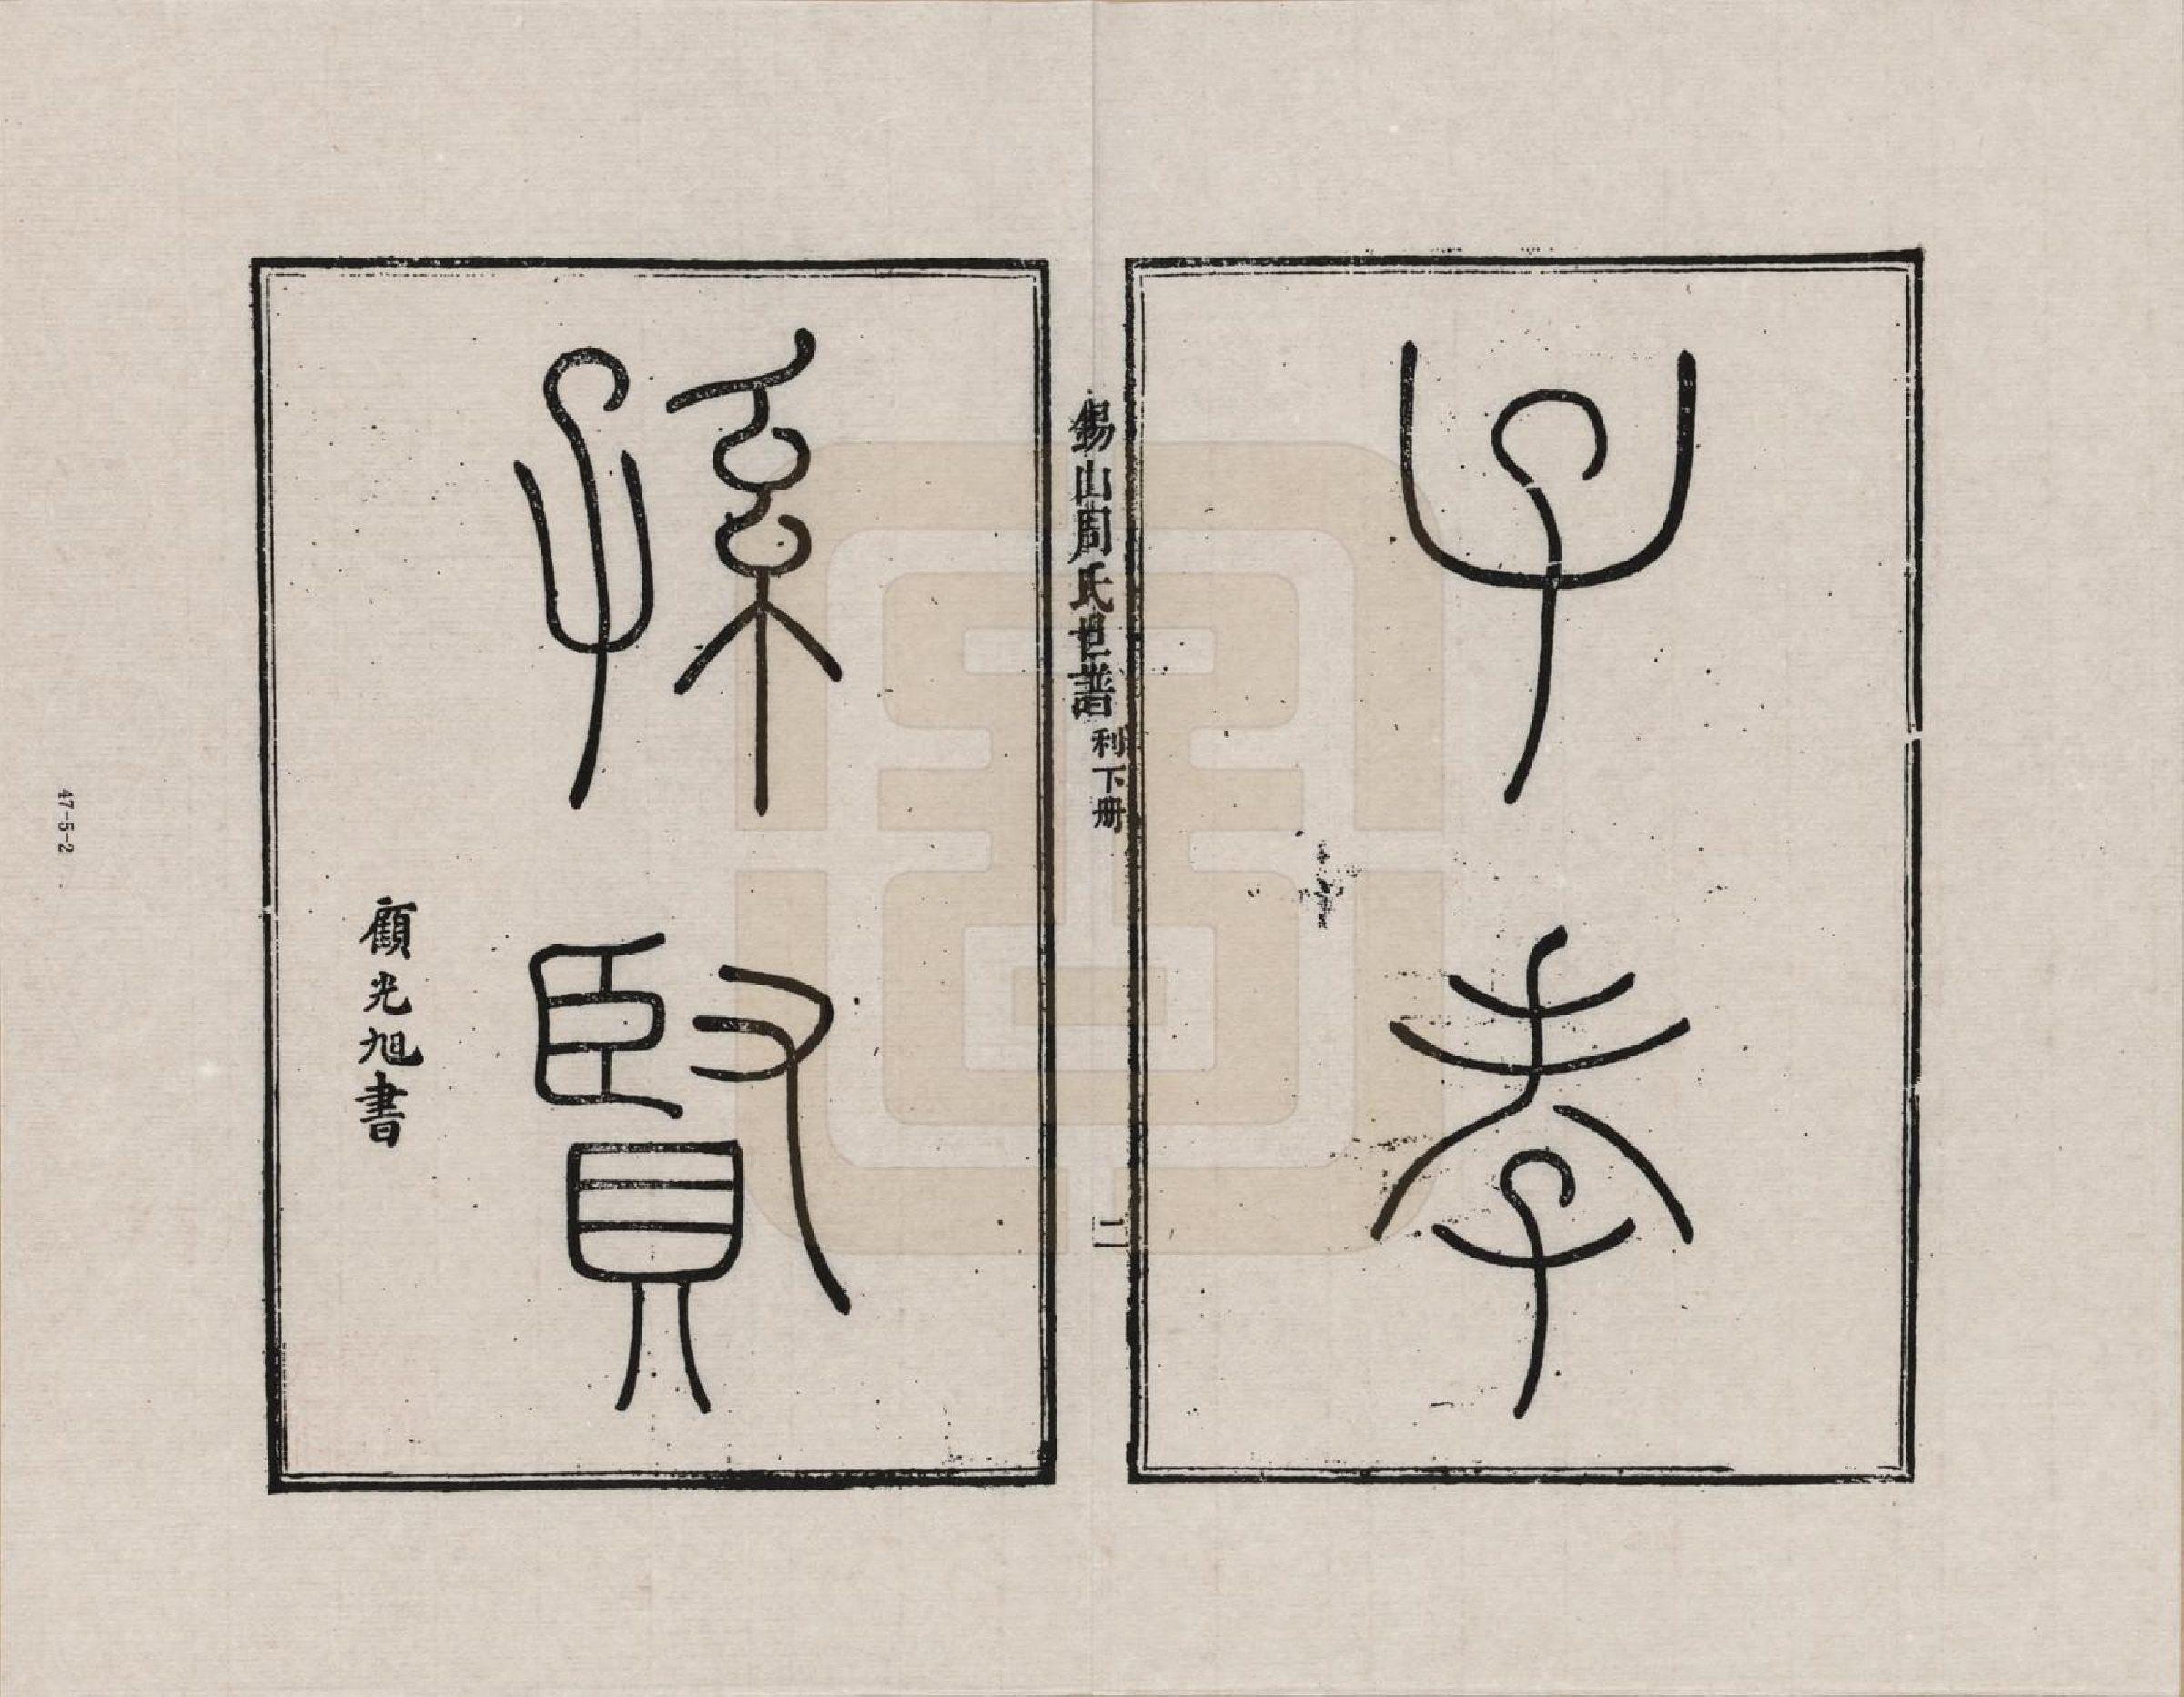 子孝
錫山周氏世譜 利下册 二
孫賢
顧光旭書
47-5-2